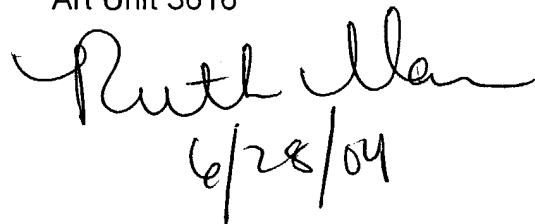 Art Unit 3616
Ruth
6/28/04